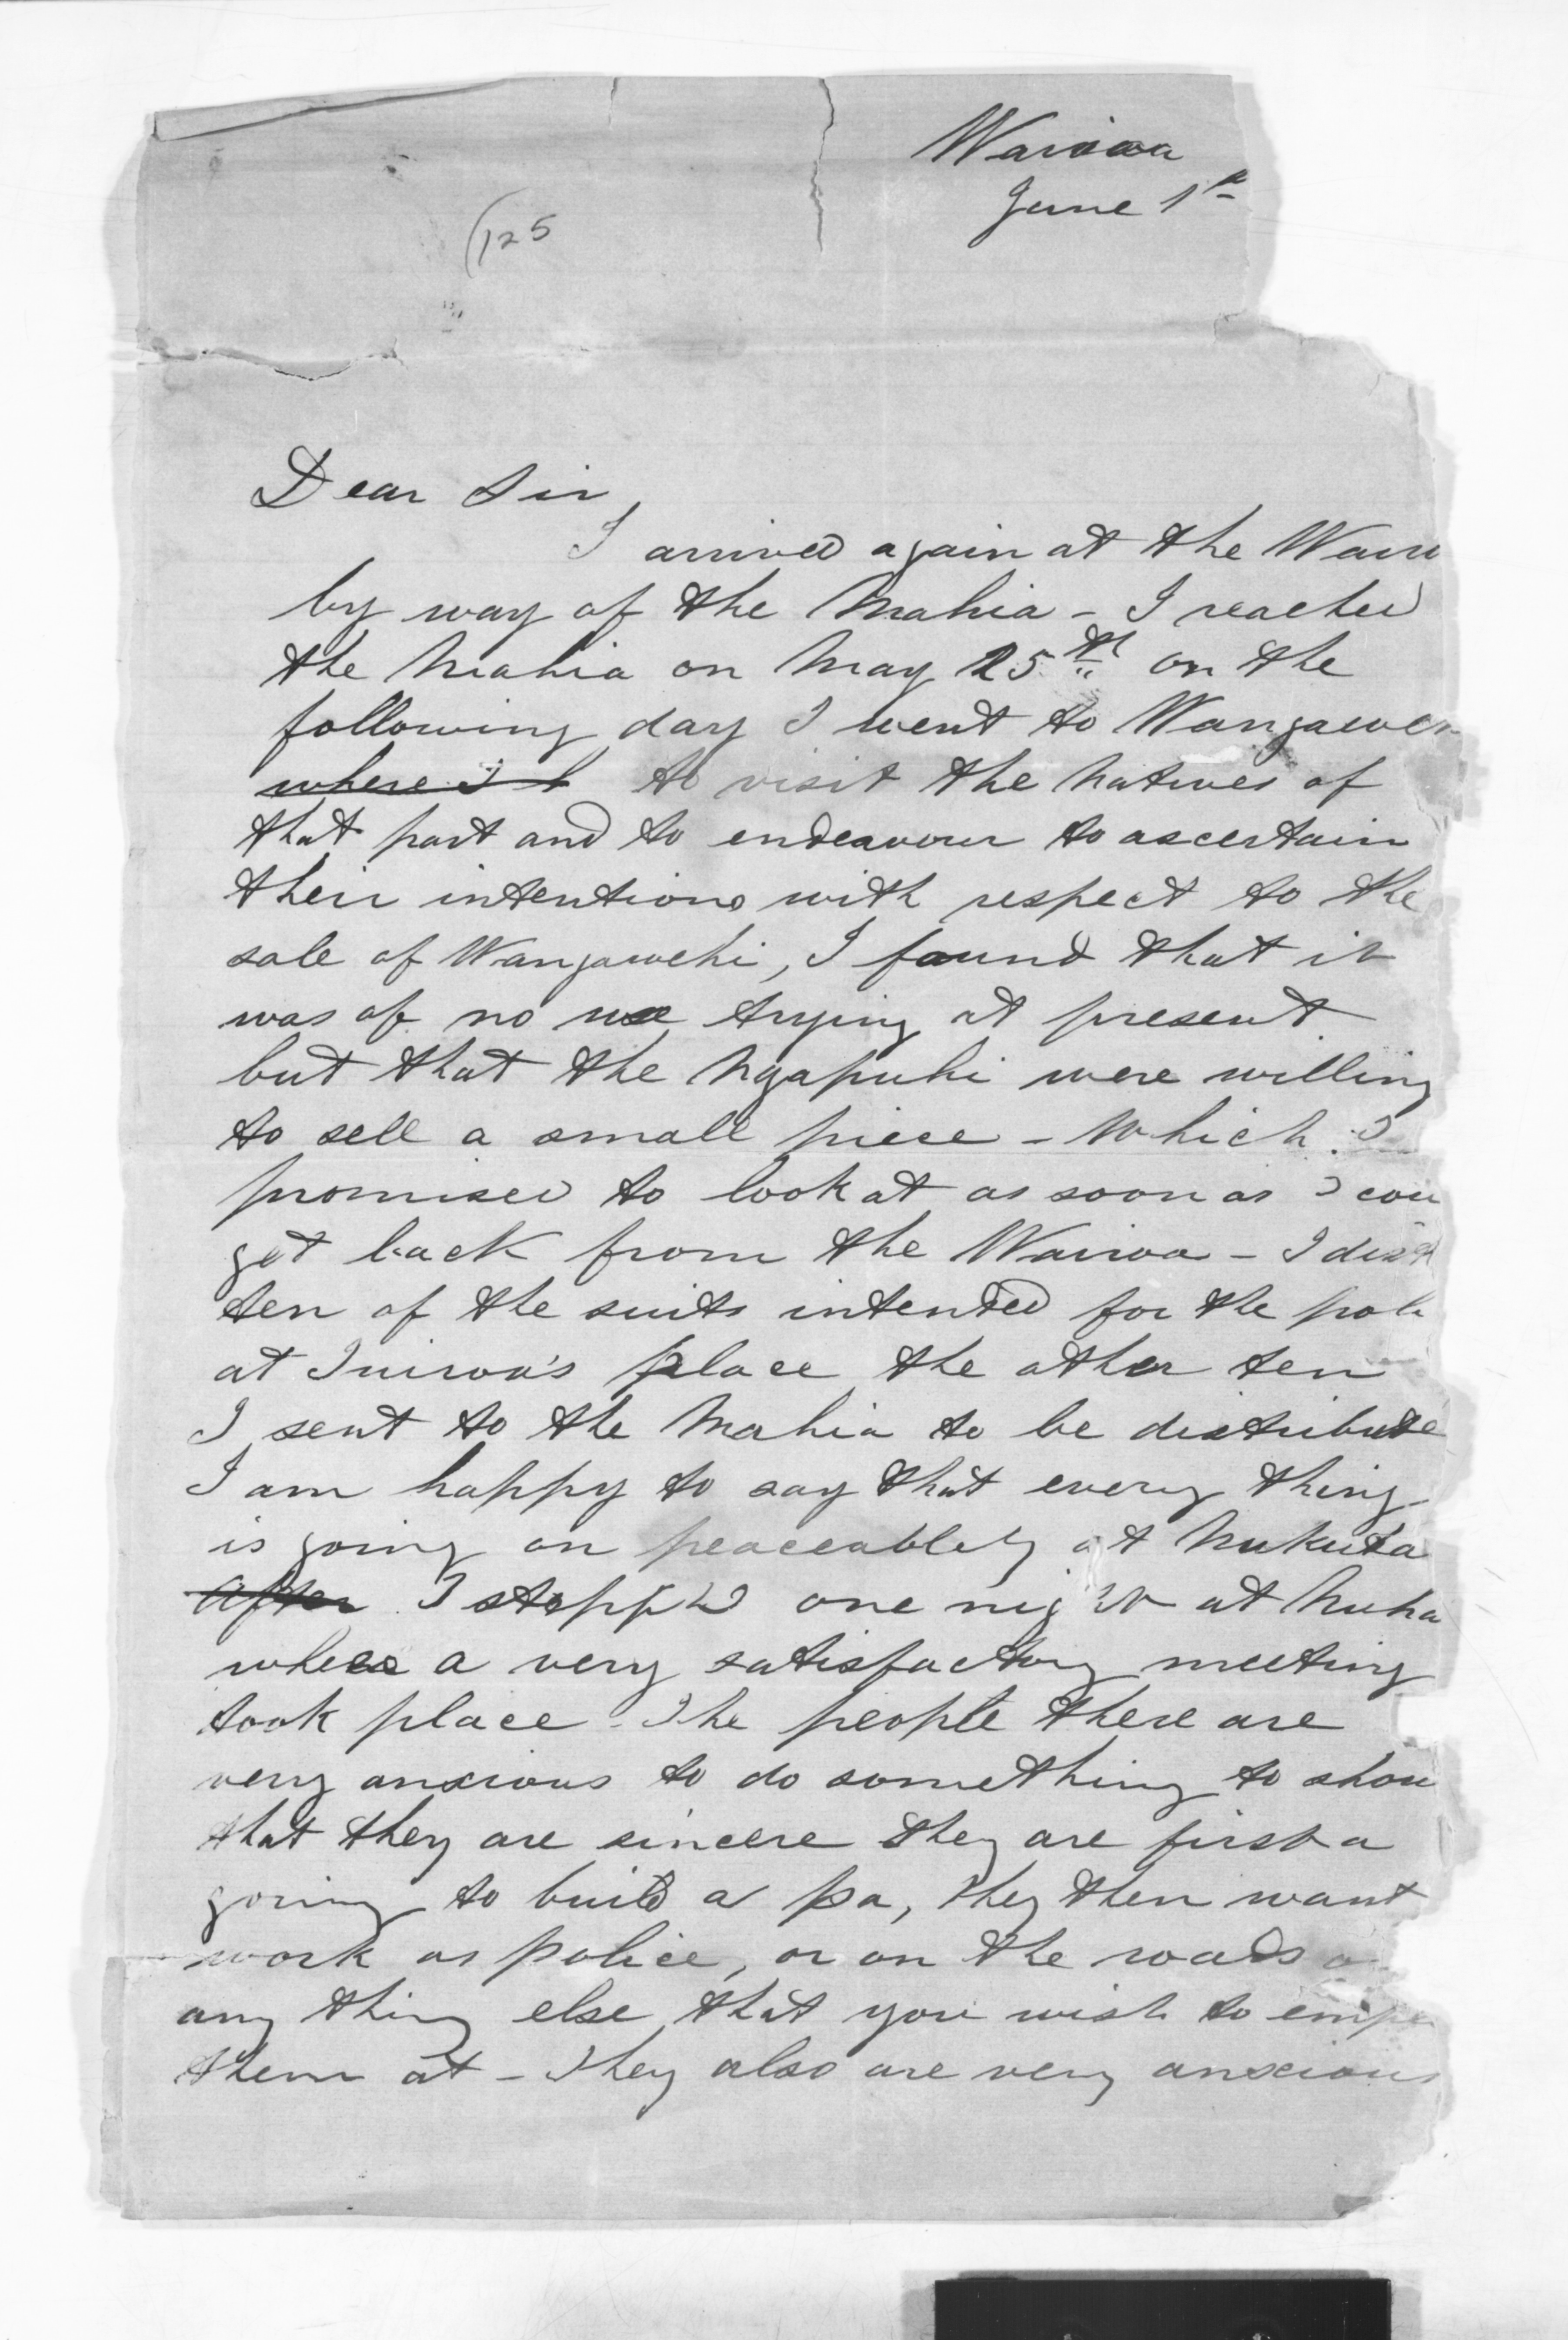 Wairoa
June 1st
(125
Dear Sir,
I arrived again at the Wairo
by way of the Mahia - I reached
the Mahia on May 25th on the
following day I went to Wangaweh
where I to visit the Natives of
that part and to endeavour to ascertain
their intentions with respect to the
sale of Wangawehi, I found that it
was of no use trying at present
but that the Ngapuhi were willing
to sell a small piece - Which I
promised to look at as soon as I cou
get back from the Wairoa - I dist
ten of the suits intended for the poli
at place the other ten
I sent to the Mahia to be distribute
I am happy to say that every thing
is going on peaceably at Nukuta
After I stopped one night at Nuha
where a very satisfactory meeting
took place - The people there are
very anxious to do something to show
that they are sincere they are first a
going to build a pa, they then want
work as police, or on the roads o
any thing else that you wish to emp
them at - They also are very anxious